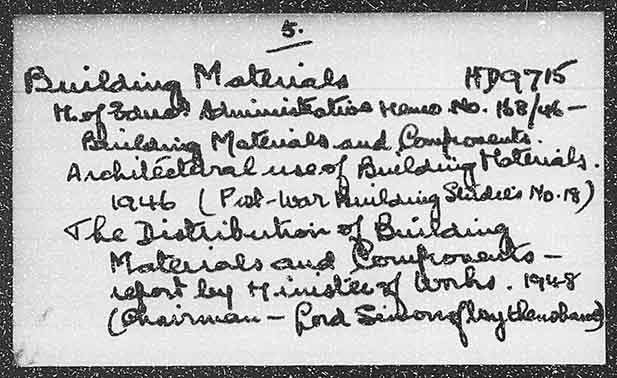 5.
Building Materials HD9715
M. of Educ. Administrative Memo. No. 168/46 –
Building Materials and Components.
Architectural use of Building Materials.
1946 (Post-War Building Studies No. 18)
The Distribution of Building
Materials and Components –
report by Minister of Works. 1948
(Chairman – Lord Simon of Wythenshawe)